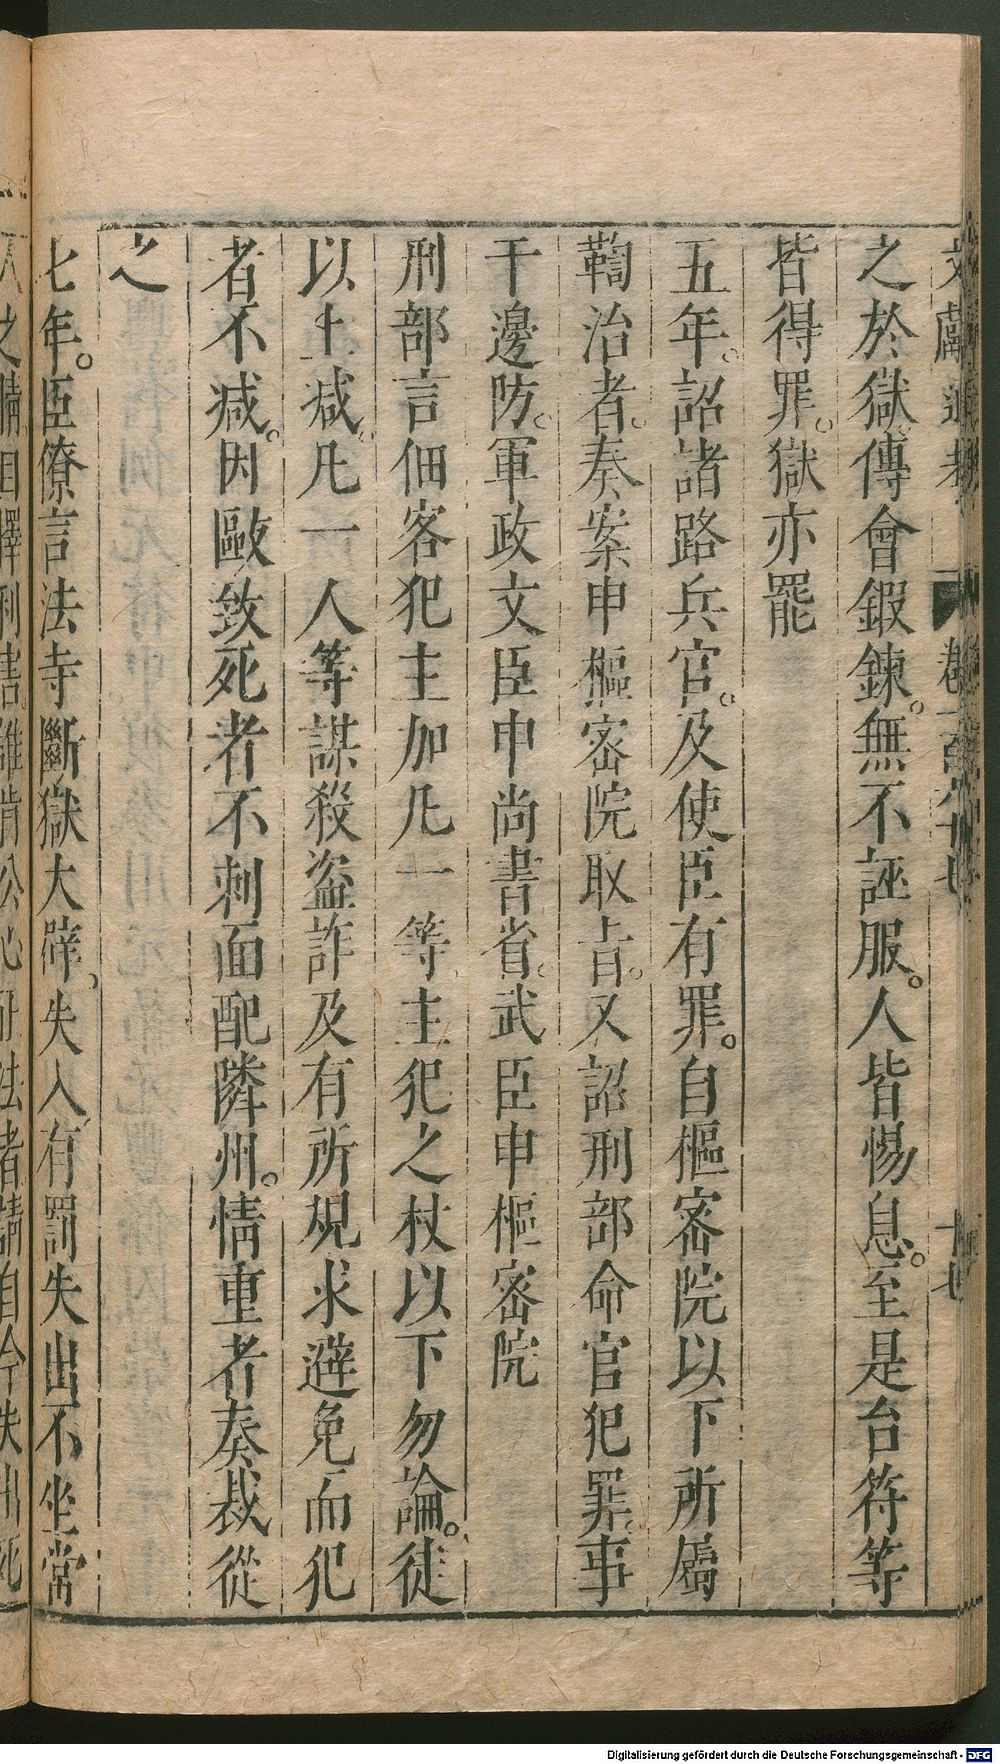 文獻通考 卷一百六十七 十七
之於獄。傅會鍛鍊。無不誣服。人皆惕息。至是台符等
皆得罪。獄亦罷
五年。詔諸路兵官。及使臣有罪。自樞密院以下所屬
鞫治者。奏案申樞密院取旨。又詔刑部命官犯罪。事
干邊防。軍政文臣申尚書省。武臣申樞密院
刑部言佃客犯主加凡一等。主犯之杖以下勿論。徒
以上減。凡一人等謀殺盜詐及有所規求避免而犯
者不減。因毆致死者不刺面配隣州。情重者奏裁從
之
七年。臣僚言法寺斷獄大辟。失入有罰失出不坐常
人之情自擇利害誰肯公心正法者請自今失出死
Digitalisierung gefördert durch die Deutsche Forschungsgemeinschaft - DFG